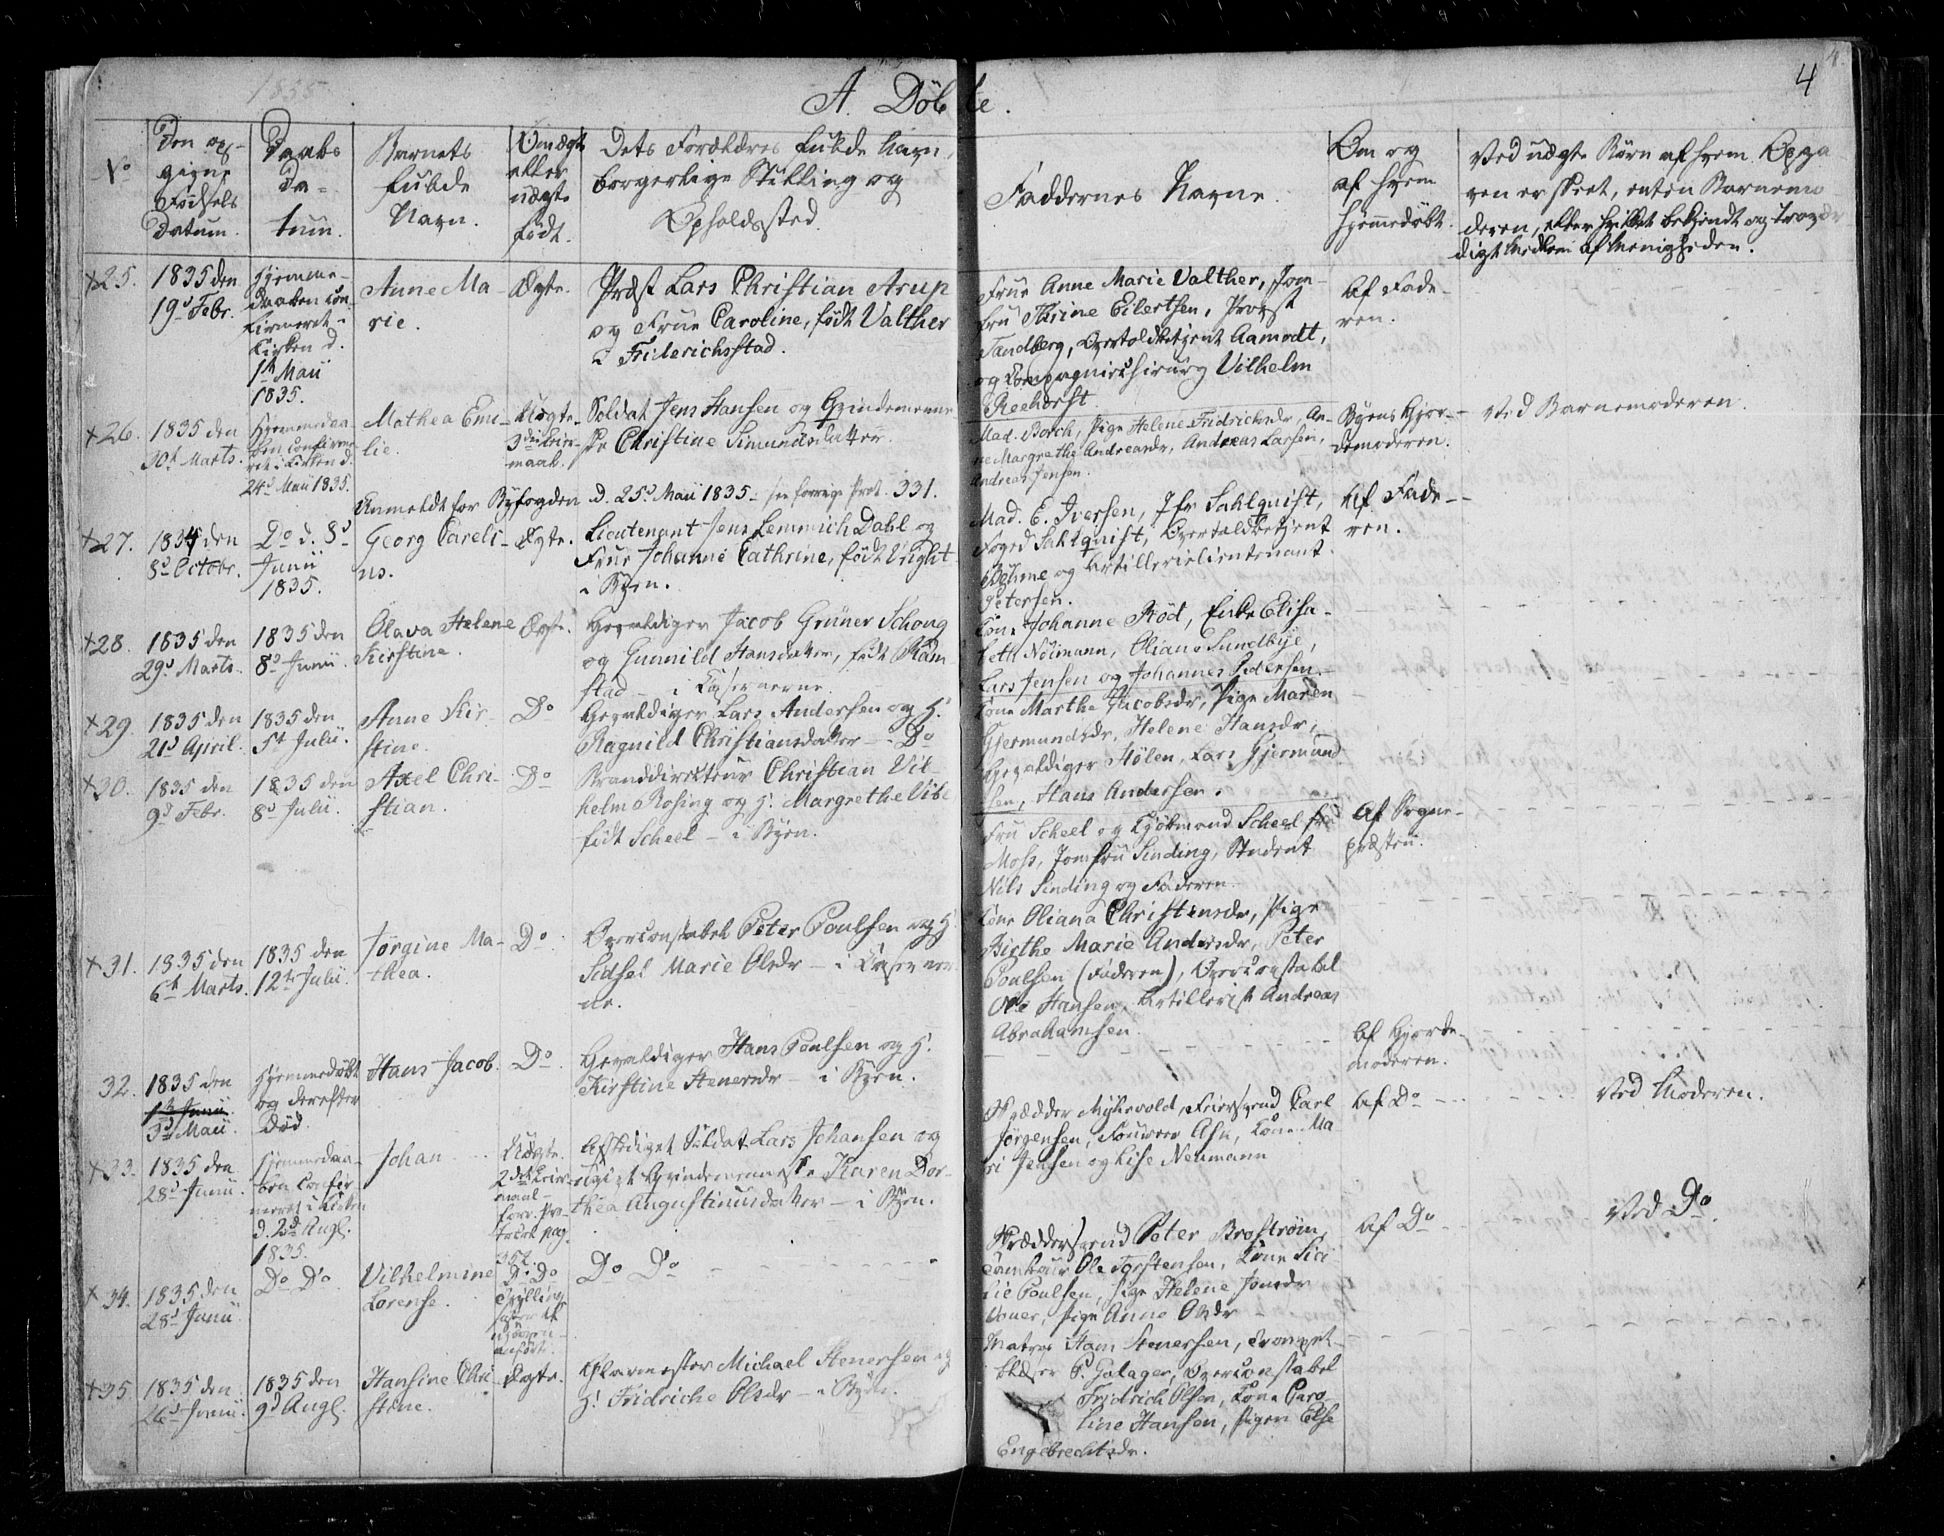 1835
A. Döbte.
4
No
Den op-
givne
Födsels
Datum.
Daabs
Da-
tum.
Barnets
fulde
Navn.
Om ægte
eller
uægte
födt.
Dets Forældres fulde Navn,
borgerlige Stilling og
Opholdssted.
Faddernes Navne.
Om og
af hvem
hjemmedöbt.
Ved uægte Börn af hvem Opga-
ven er skeet, enten Barnemo-
deren, eller hvilket bekjendt og trovær-
digt Medlem af Menigheden.
+25.
1835 den
19d Febr.
Hjemme-
daaben con-
firmeret i
Kirken d.
1te Maii
1835.
Anne Ma-
rie.
Ægte.
Præst Lars Christian Arup
og Frue Caroline, födt Valther
i Friderichsstad.
Frue Anne Marie Valther, Jom-
fru Thrine Eilertsen, Provst
Tandberg, Overtoldbetjent Aamodt,
og Compagniechirurg Vilhelm
Reehorst.
Af Fade-
ren.
+26.
1835 den
30te Marts.
Hjemmedaa-
ben confirme-
ret i Kirken d.
24d Maii 1835.
Mathea Emi-
lie.
Uægte.
3die Leier-
maal.
Soldat Jens Hansen og Qvindemenne-
ske Christine Simundsdatter.
Anmeldt for Byfogden d. 25d Maii 1835 - see forrige Prot. 331.
Mad. Borch, Pige Helene Fridrichsdr, An-
ne Margrethe Andreasdr, Andreas Larsen,
Andreas Jensen.
Byens Gjor-
demoderen.
Ved Barnemoderen.
+27.
1834 den
8d Octobr.
Do d. 8d
Junii
1835.
Georg Careli-
us.
Ægte.
Lieutenant Jens Lemmich Dahl og
Frue Johanne Cathrine, födt Wright
i Byen.
Mad. E. Iversen, Jfr Sahlquist,
Foged Sahlquist, Overtoldbetjent
Böhme og Artillerielieutenant
Petersen.
Af Fade-
ren.
+28.
1835 den
29d Marts.
1835 den
8d Junii.
Olava Helene
Kirstine.
Ægte.
Gevaldiger Jacob Grüner Schoug
og Gunnild Hansdatter, födt Ram-
stad - i Casernerne.
Kone Johanne Röd, Enke Elisa-
beth Nöimann, Oliane Sundbye,
Lars Jensen og Johannes Pedersen.
+29
1835 den
21d April.
1835 den
5te Julii.
Anne Kir-
stine.
Do
Gevaldiger Lars Andersen og H.
Ragnild Christiansdatter - Do
Kone Marthe Jacobsdr, Pige Maren
Gjermundsdr, Helene Hansdr,
Gevaldiger Hölen, Lars Gjermund-
sen, Hans Andersen.
+30.
1835 den
9d Febr.
1835 den
8d Julii.
Axel Chri-
stian.
Do
Stranddirecteur Christian Vil-
helm Rosing og H. Margrethe Vibe
födt Scheel - i Byen.
Fru Scheel og Kjöbmand Scheel fra
Moss, Jomfru Sinding, Student
Nils Sinding og Faderen.
Af Sogne-
præsten.
+31.
1835 den
6te Marts.
1835 den
12te Julii.
Jörgine Ma-
thea.
Do
Overconstabel Peter Poulsen og H.
Sidsel Marie Olsdr - i Caserner-
ne.
Kone Oliana Christensdr, Pige
Birthe Marie Andersdr, Peter
Poulsen (Faderen), Overconstabel
Ole Hansen, Artillerist Andreas
Abrahamsen.
32.
1835 den
1te Junii
3d Maii.
Hjemmedöbt
og derefter
död.
Hans Jacob.
Do
Gevaldiger Hans Poulsen og H.
Kirstine Stenersdr - i Byen.
Af Gjorde-
moderen.
+33.
1835 den
28d Junii.
Hjemmedaa-
ben confir-
meret i Kirken
d. 23d Aug.
1835.
Johan.
Uægte.
2det Leier-
maal -
forr. Pro-
tocol pag.
352.
Afskediget Soldat Lars Johansen og
Qvindemenneske Karen Dor-
thea Augustinusdatter - i Byen.
Skrædder Myhrvold, Carl
Jörgensen, Ask, Kone Ma-
ri Jensen og Lise Neumann
Af Do
Ved Moderen.
+34.
1835 den
28d Junii.
Do Do
Vilhelmine
Lorense.
Do Do
Tvilling-
anfört.
Do Do
Skræddersvend Peter Broström,
Tambour Ole Torstensen, Kone
Poulsen, Pige Helene Jonsdr
Pige Anne Olsdr
Af Do
Ved Do.
+35
1835 den
26d Junii.
1835 den
9d Aug.
Hansine Chri-
stine.
Ægte.
Michael Stenersen og
H. Fridriche Olsdr - i Byen.
Matros Hans Stenersen, Trompet-
blæser P. Galager, Overconstabel
Fridrich Olsen, Kone Caro-
line Hansen, Pigen Else
Engebrechtsdr.